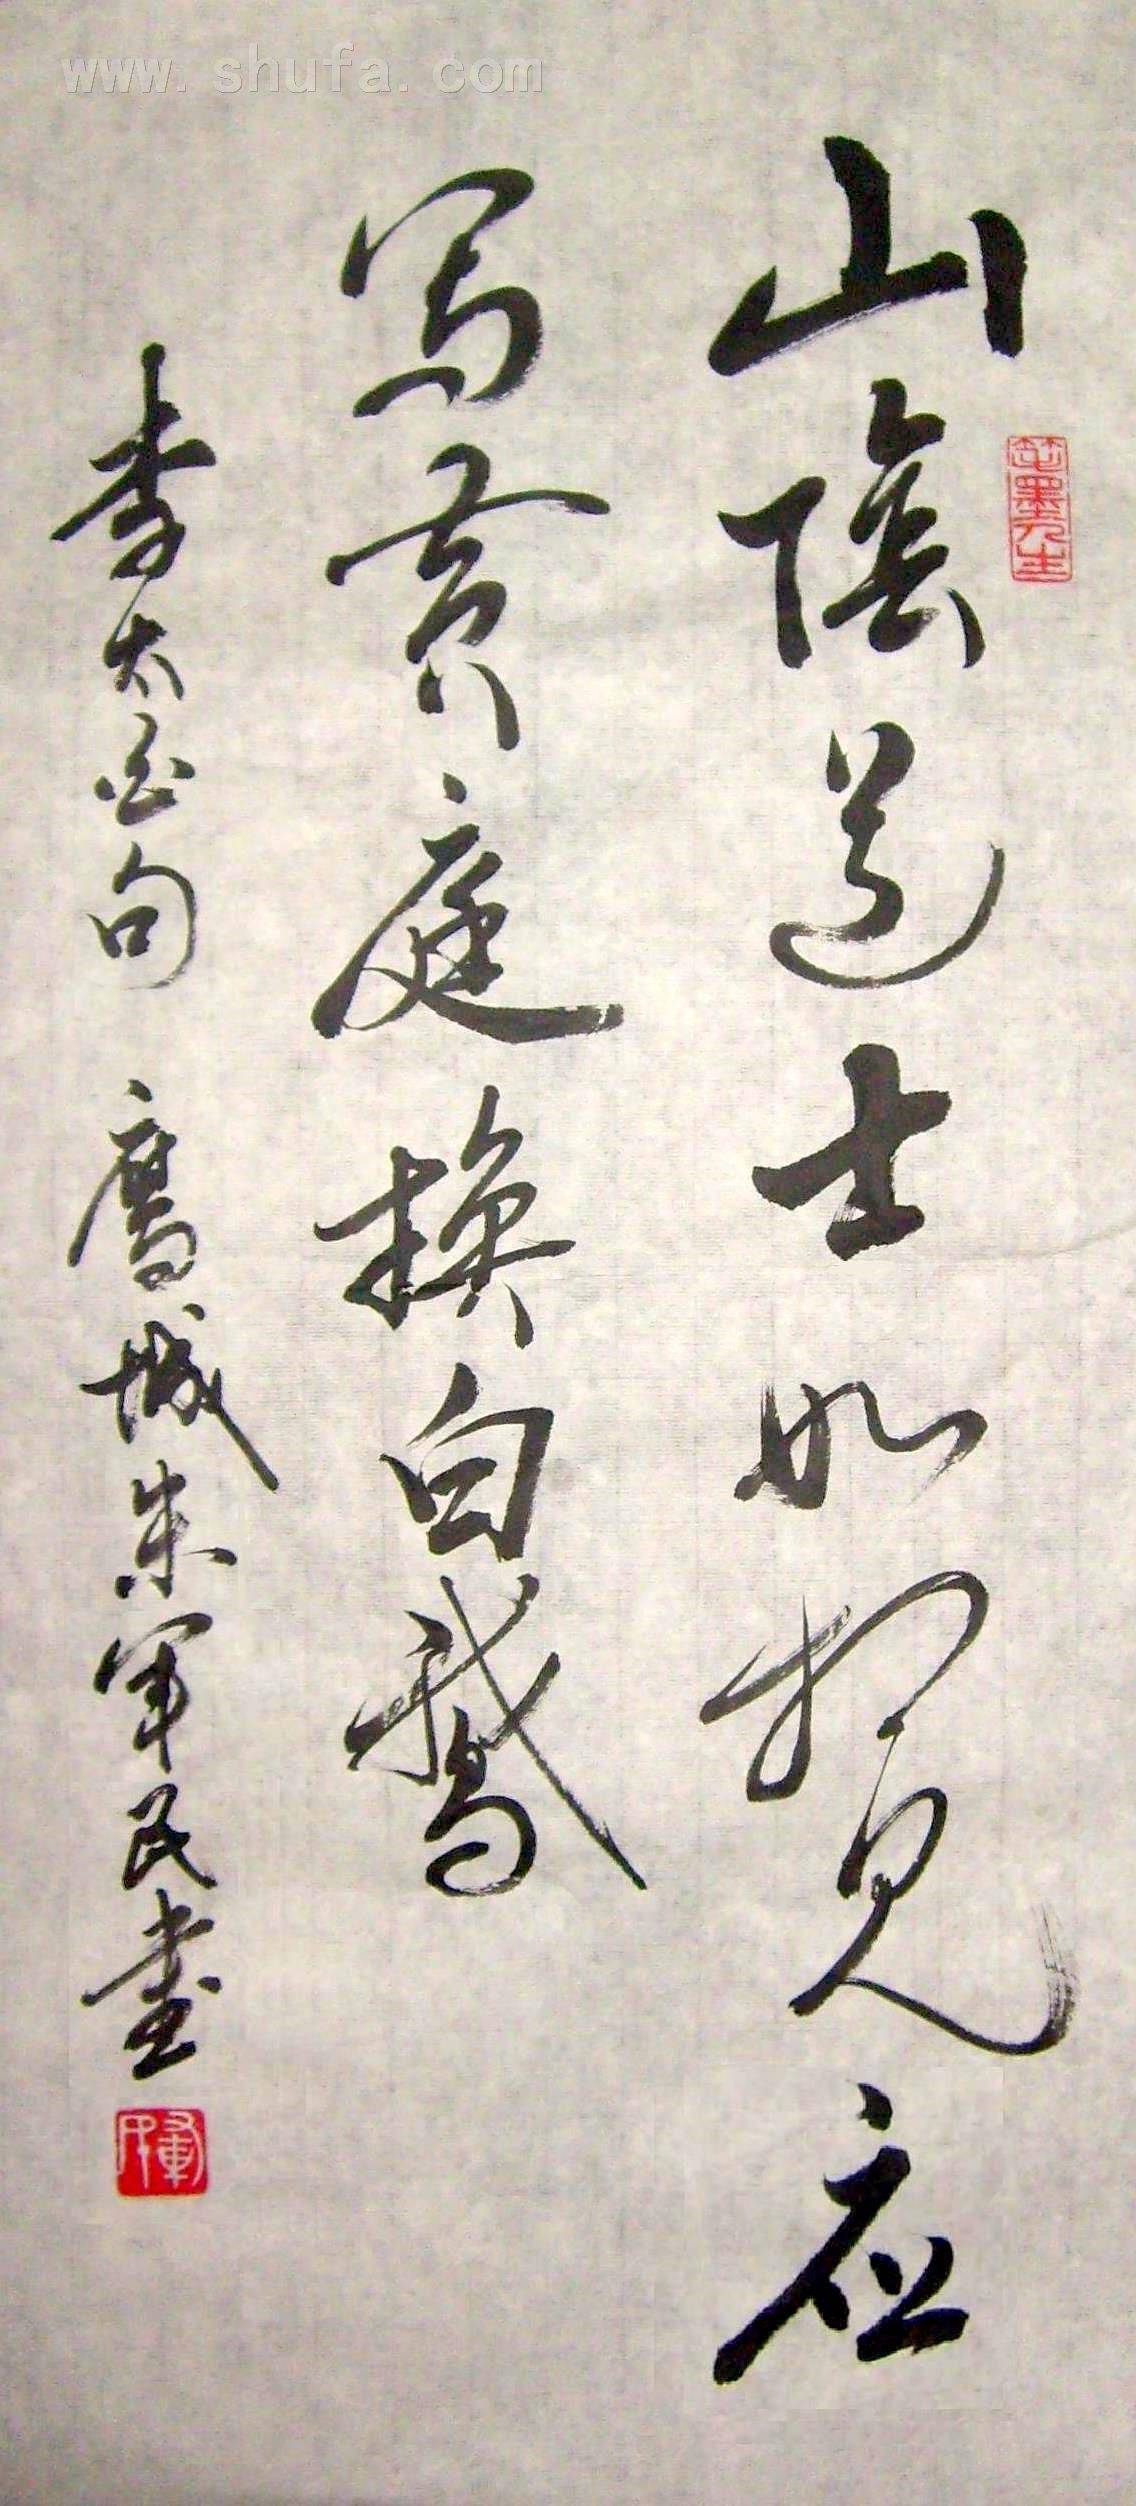 www.shufa.com
山陰道士如相見应
寫黄庭換白鵝
李太白句 鷹城朱军民書